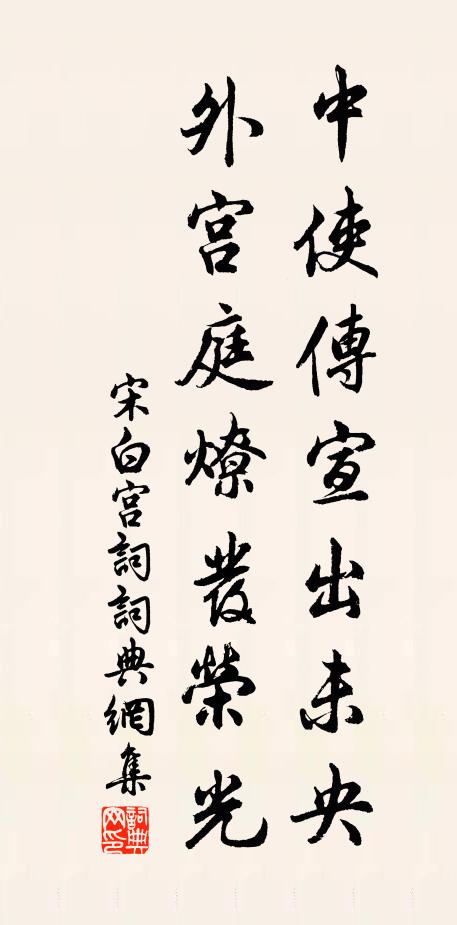 中使傳宣出未央
外宮庭燎發榮光
宋白宮詞詞典網集
詞典網印